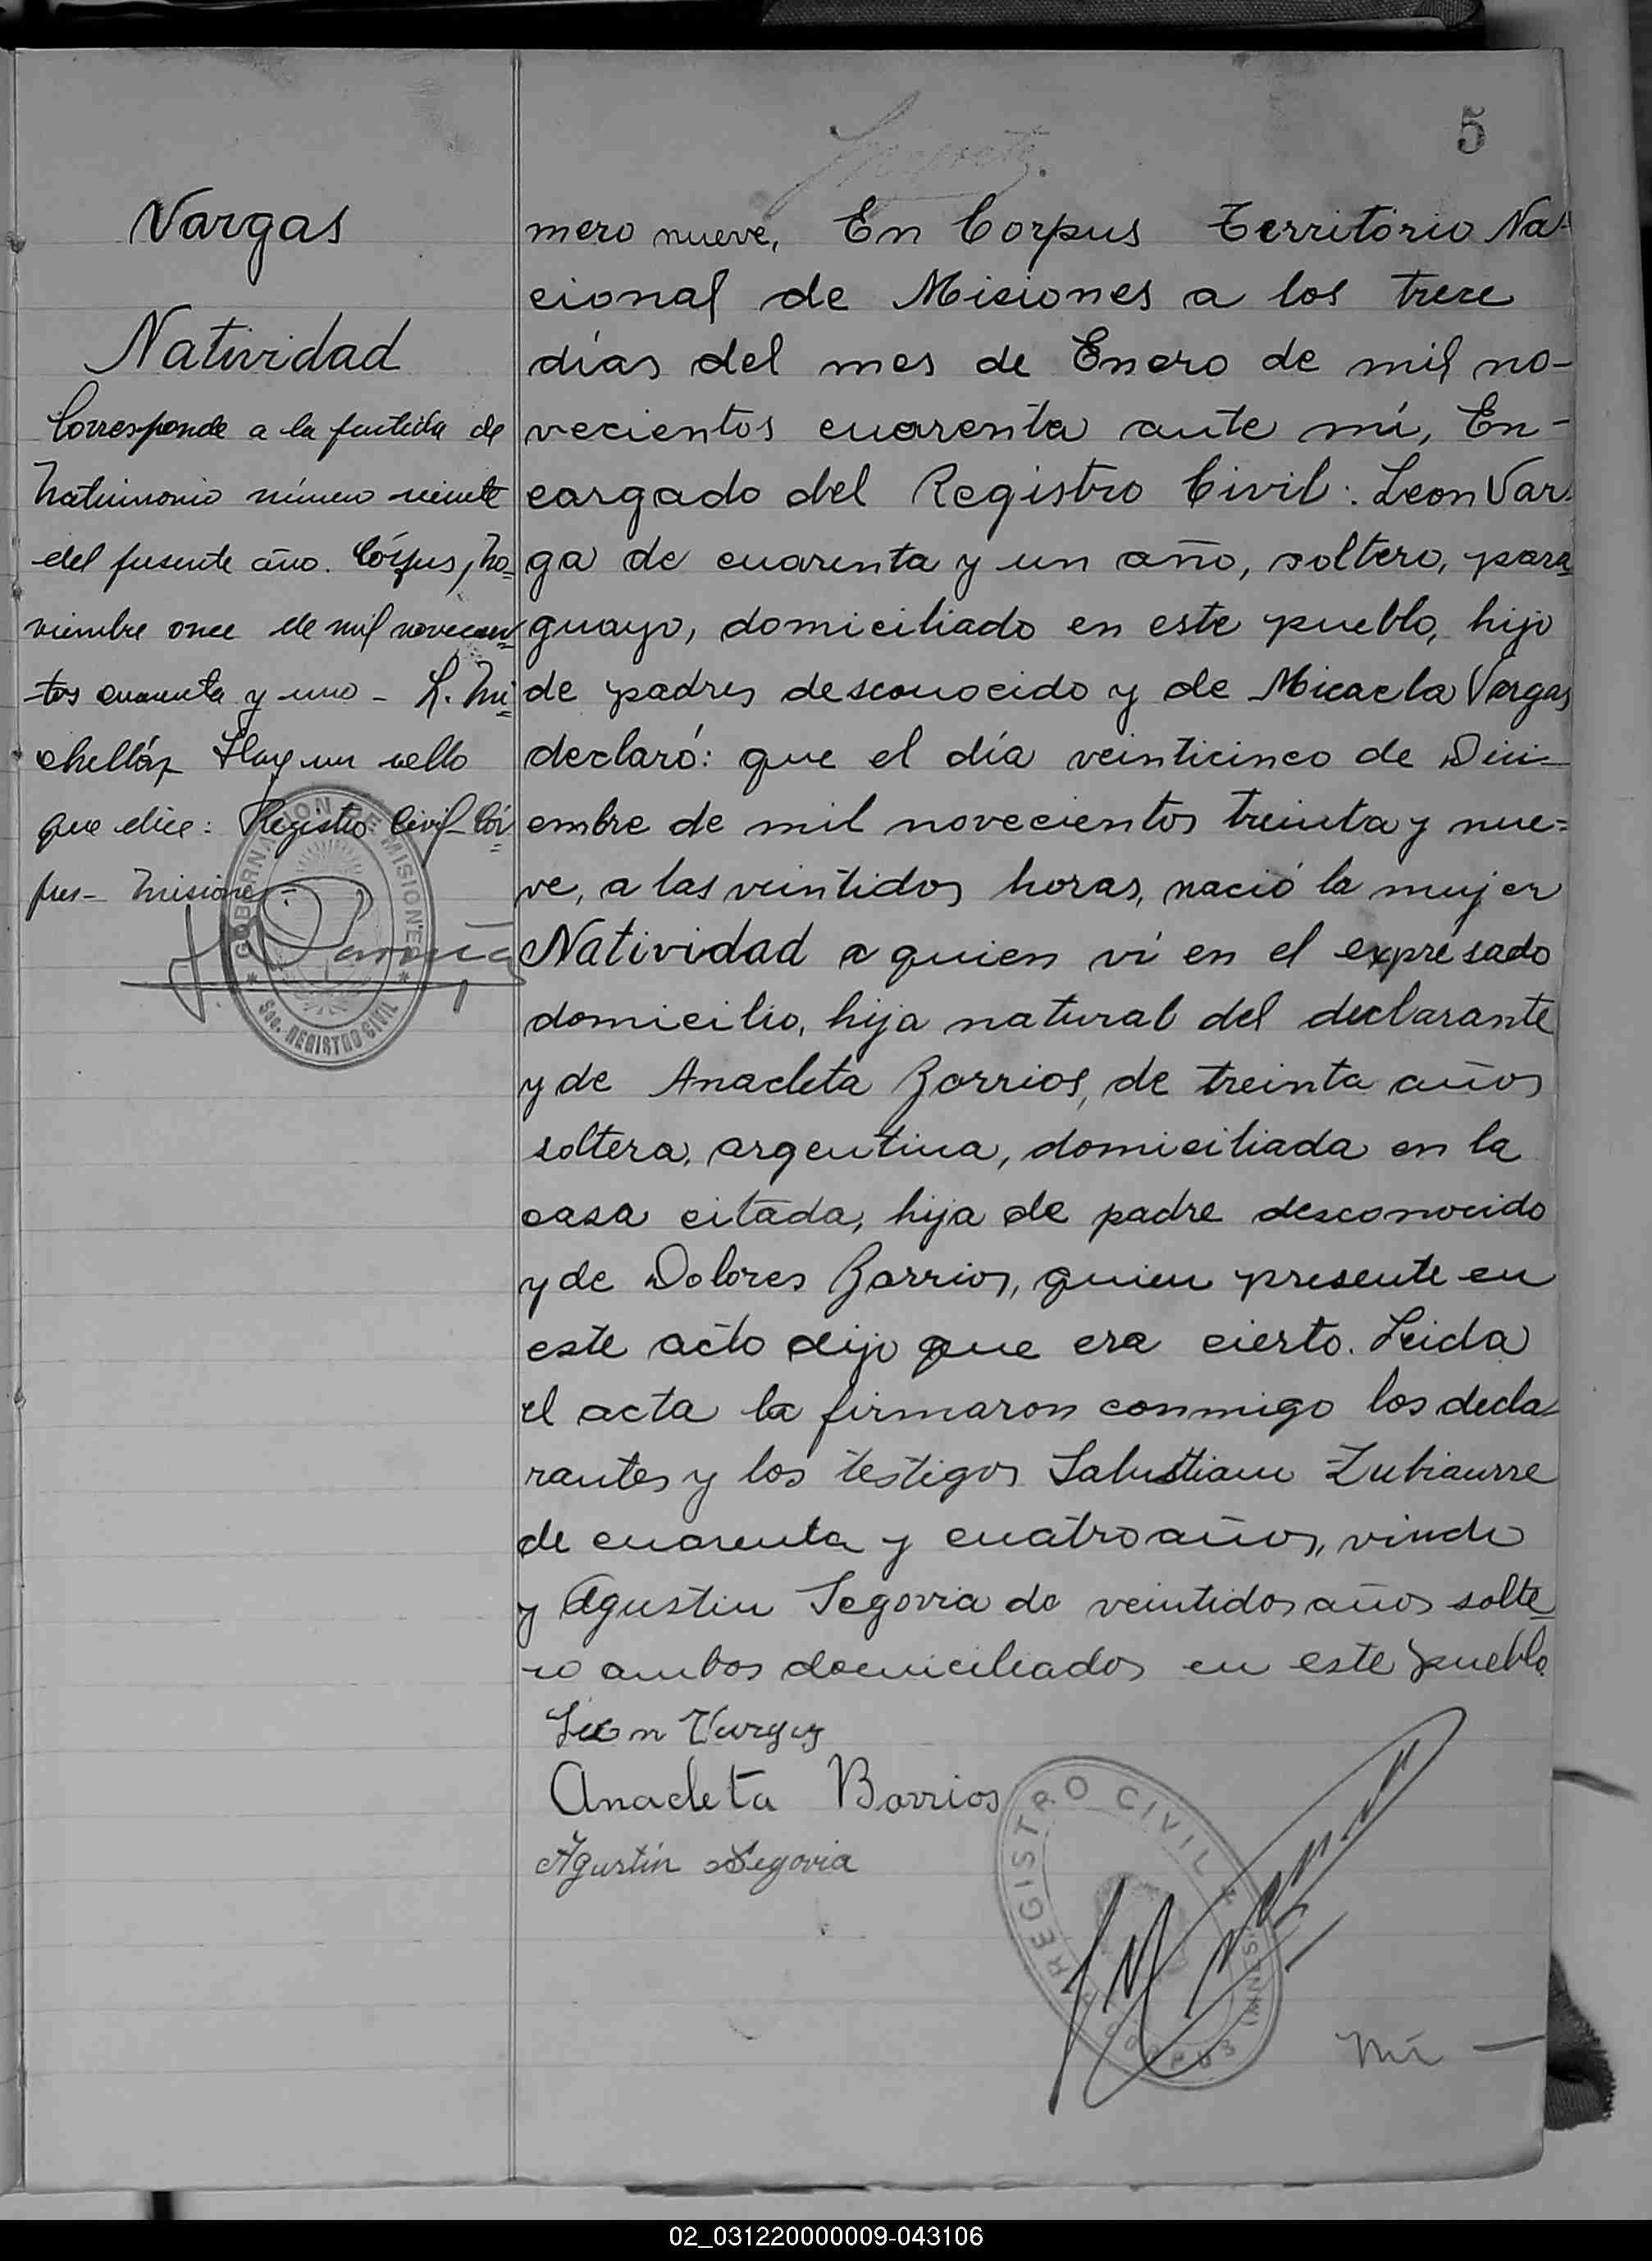 5
Vargas
Natividad
Corresponde a la partida de
Matrimonio número veinte
del presente año. Corpus, No-
viembre once de mil novecien=
tos cuarenta y uno - L. Mi=
chellóz Hay un sello
que dice: Registro Civil - Cor=
pus - Misiones -
GOBERNACION DE MISIONES
Sec. REGISTRO CIVIL
mero nueve, En Corpus Territorio Na-
cional de Misiones a los trece
días del mes de Enero de mil no-
vecientos cuarenta ante mí, En-
cargado del Registro Civil: Leon Var-
ga de cuarenta y un año, soltero, para
guayo, domiciliado en este pueblo, hijo
de padres desconocido y de Micaela Vargas
declaró: que el día veinticinco de Dici-
embre de mil novecientos treinta y nue=
ve, a las veintidos horas, nació la mujer
Natividad a quien ví en el expresado
domicilio, hija natural del declarante
y de Anacleta Barrios, de treinta años
soltera, argentina, domiciliada en la
casa citada, hija de padre desconocido
y de Dolores Barrios, quien presente en
este acto dijo que era cierto. Leida
el acta la firmaron conmigo los decla-
rantes y los testigos Salustiano Zubiaurre
de cuarenta y cuatro años, viudo
y Agustin Segovia de veintidos años solte
ro ambos domiciliados en este pueblo.
Leon Vargas
Anacleta Barrios
Agustín Segovia
REGISTRO CIVIL
CORPUS
Nú -
02_031220000009-043106